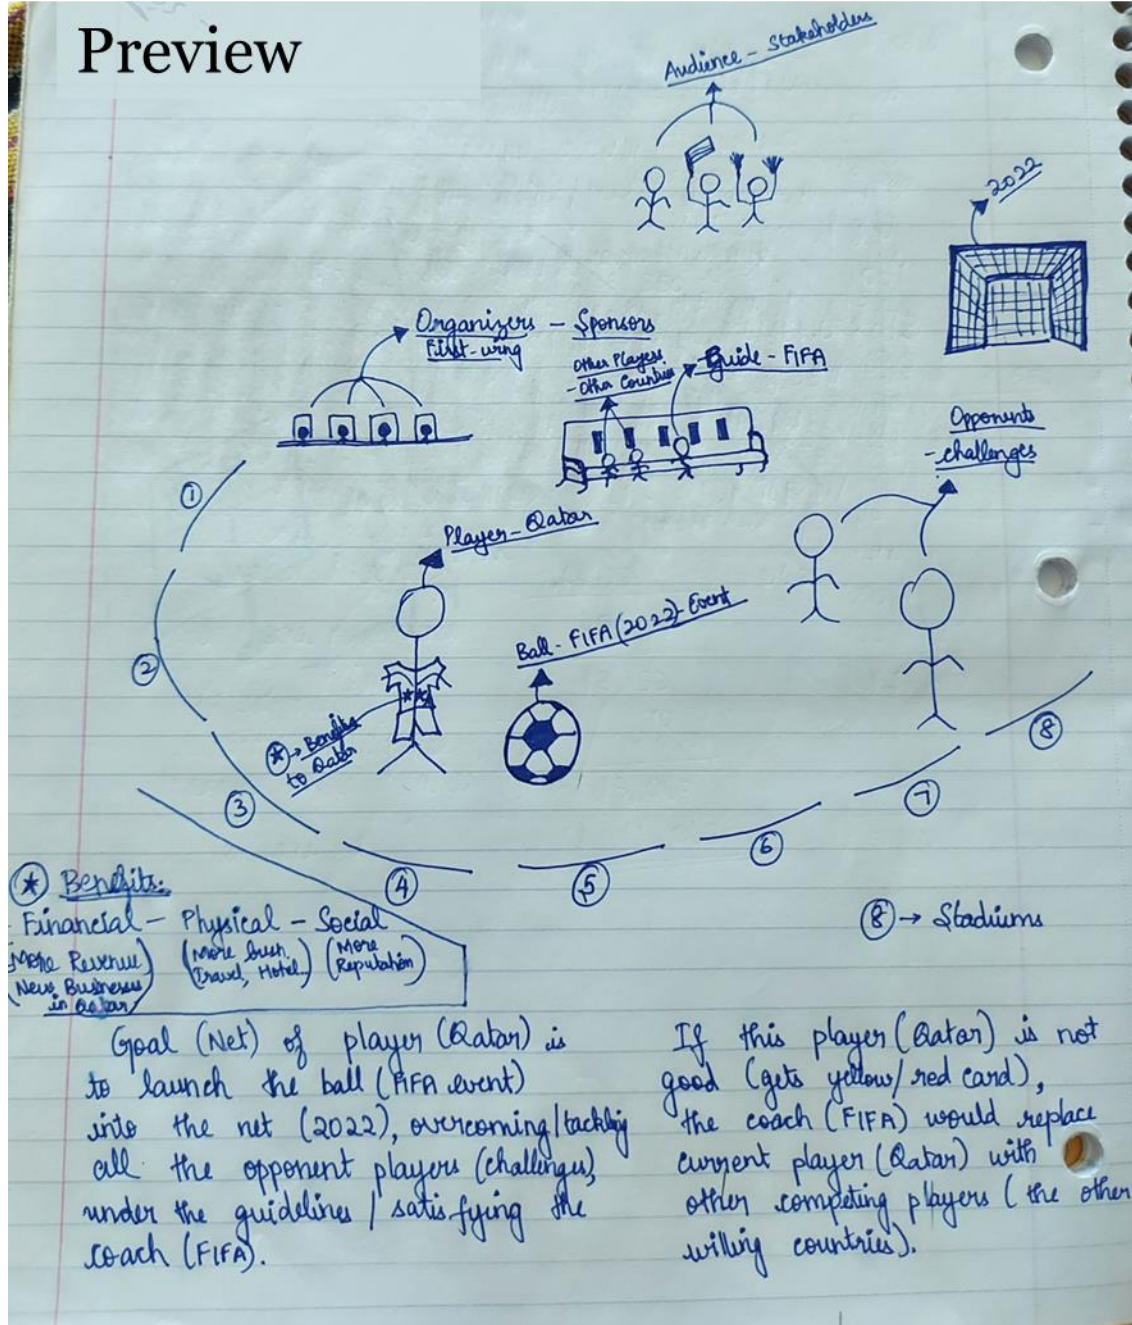 Preview
Audience - Stakeholders
2022
Organizers - Sponsors
First-wing
Other Players
- Other Countries
Guide - FIFA
Opponents
- challenges
Player - Qatar
Ball - FIFA (2022) - Event
* → Benefits
to Qatar
1
2
3
4
5
6
7
8
* Benefits:
Financial - Physical - Social
(More Revenue)
(New Businesses
in Qatar)
(More busi.
Travel, Hotel.)
(More
Reputation)
8 → Stadiums
Goal (Net) of player (Qatar) is
to launch the ball (FIFA event)
into the net (2022), overcoming/tackling
all the opponent players (challenges),
under the guidelines / satisfying the
coach (FIFA).
If this player (Qatar) is not
good (gets yellow/red card),
the coach (FIFA) would replace
current player (Qatar) with
other competing players (the other
willing countries).